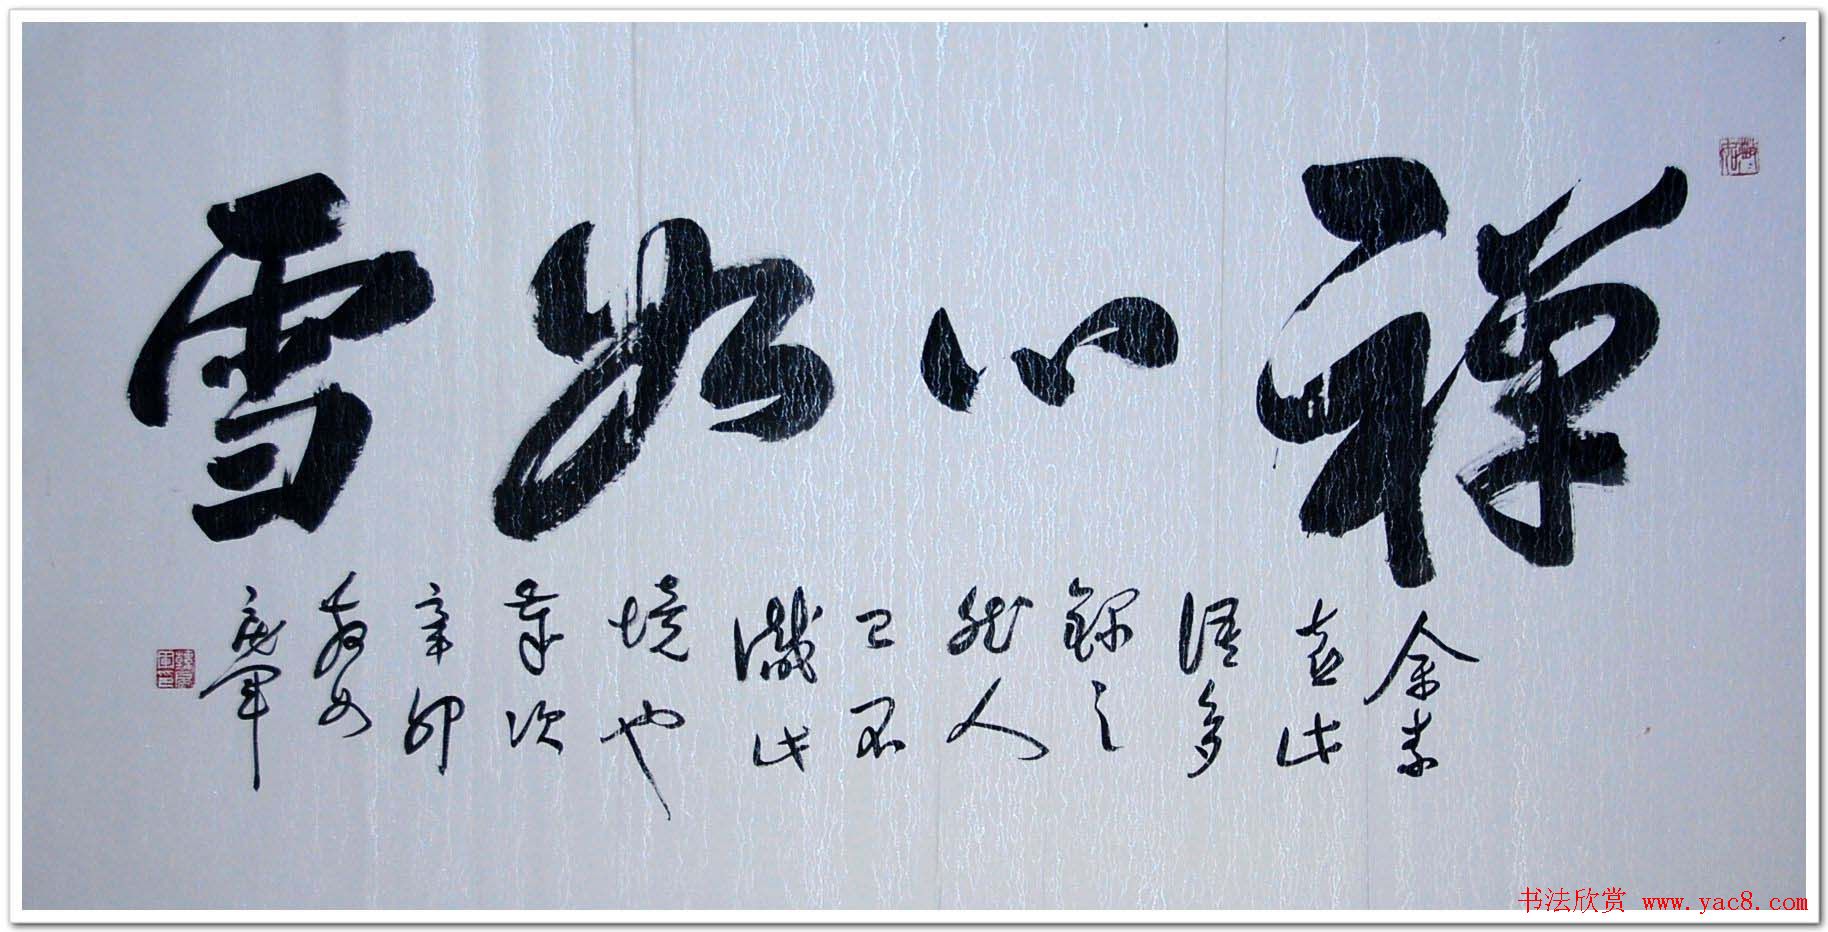 禅心如雪
余素
喜此
语多
録之
然人
已不
識此
境也
歲次
辛卯
春如
書法欣赏 www.yac8.com